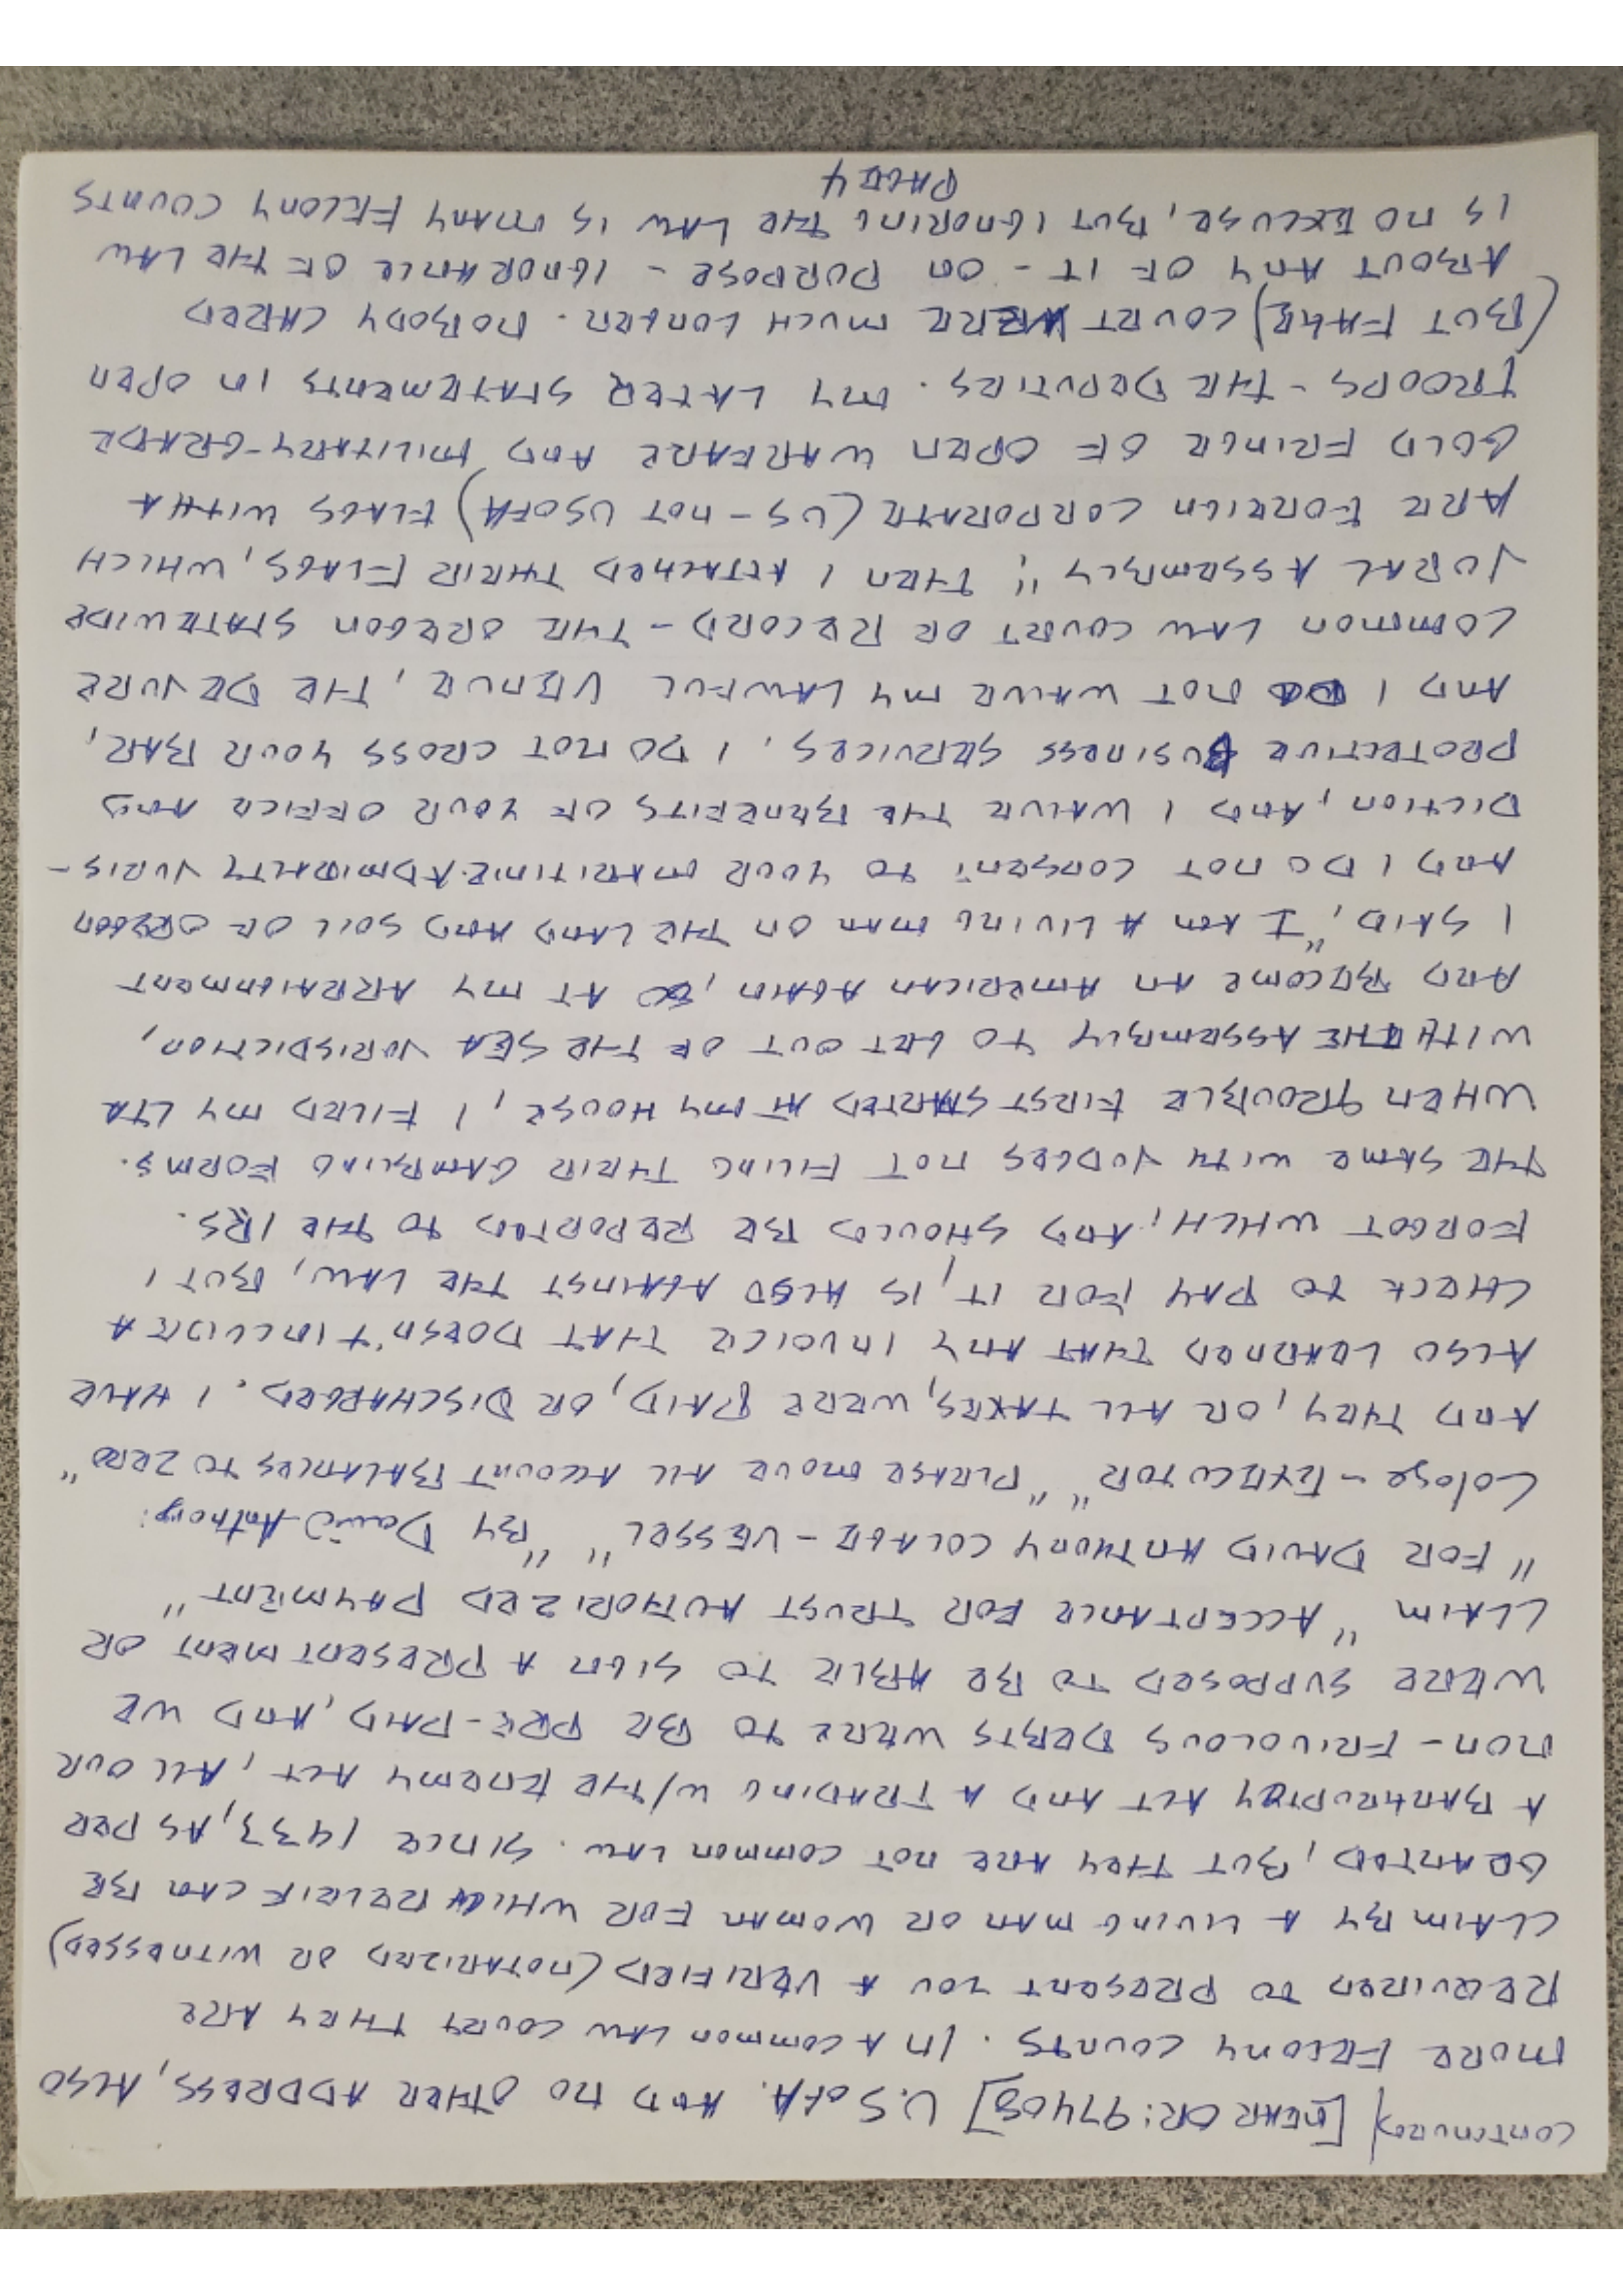 CONTINUED) [NEAR OR: 97408] U.S of A. AND NO OTHER ADDRESS, ALSO
MORE FELONY COUNTS. IN A COMMON LAW COURT THEY ARE
REQUIRED TO PRESENT YOU A VERIFIED (NOTARIZED OR WITNESSED)
CLAIM BY A LIVING MAN OR WOMAN FOR WHICH RELEIF CAN BE
GRANTED, BUT THEY ARE NOT COMMON LAW. SINCE 1933, AS PER
A BANKRUPTCY ACT AND A TRADING W/THE ENEMY ACT, ALL OUR
NON-FRIVOLOUS DEBTS WERE TO BE PRE-PAID, AND WE
WERE SUPPOSED TO BE ABLE TO SIGN A PRESENTMENT OR
CLAIM "ACCEPTANCE FOR TRUST AUTHORIZED PAYMENT"
"FOR DAVID ANTHONY COLAGE-VESSEL" "BY David-Anthony:
Colage-EXECUTOR" "PLEASE MOVE ALL ACCOUNT BALANCES TO ZERO"
AND THEY, OR ALL TAXES, WERE PAID, OR DISCHARGED. I HAVE
ALSO LEARNED THAT ANY INVOICE THAT DOESN'T INCLUDE A
CHECK TO PAY FOR IT, IS ALSO AGAINST THE LAW, BUT I
FORGOT WHICH, AND SHOULD BE REPORTED TO THE IRS.
THE SAME WITH JUDGES NOT FILING THEIR GAMBLING FORMS.
WHEN TROUBLE FIRST STARTED AT MY HOUSE, I FILED MY LTA
WITH THE ASSEMBLY TO GET OUT OF THE SEA JURISDICTION,
AND BECOME AN AMERICAN AGAIN, SO AT MY ARRAIGNMENT
I SAID, "I AM A LIVING MAN ON THE LAND AND SOIL OF OREGON
AND I DO NOT CONSENT TO YOUR MARITIME-ADMIRALTY JURIS-
DICTION, AND I WAIVE THE BENEFITS OF YOUR OFFICE AND
PROTECTIVE BUSINESS SERVICES. I DO NOT CROSS YOUR BAR,
AND I DO NOT WAIVE MY LAWFUL VENUE, THE DE JURE
COMMON LAW COURT OF RECORD - THE OREGON STATEWIDE
JURAL ASSEMBLY"; THEN I ATTACHED THEIR FLAGS, WHICH
ARE FOREIGN CORPORATE (US-NOT USOFA) FLAGS WITH A
GOLD FRINGE OF OPEN WARFARE AND MILITARY-GRADE
TROOPS - THE DEPUTIES. MY LATER STATEMENTS IN OPEN
(BUT FAKE) COURT WERE MUCH LONGER. NOBODY CARED
ABOUT ANY OF IT - ON PURPOSE - IGNORANCE OF THE LAW
IS NO EXCUSE, BUT IGNORING THE LAW IS MANY FELONY COUNTS
PAGE 4